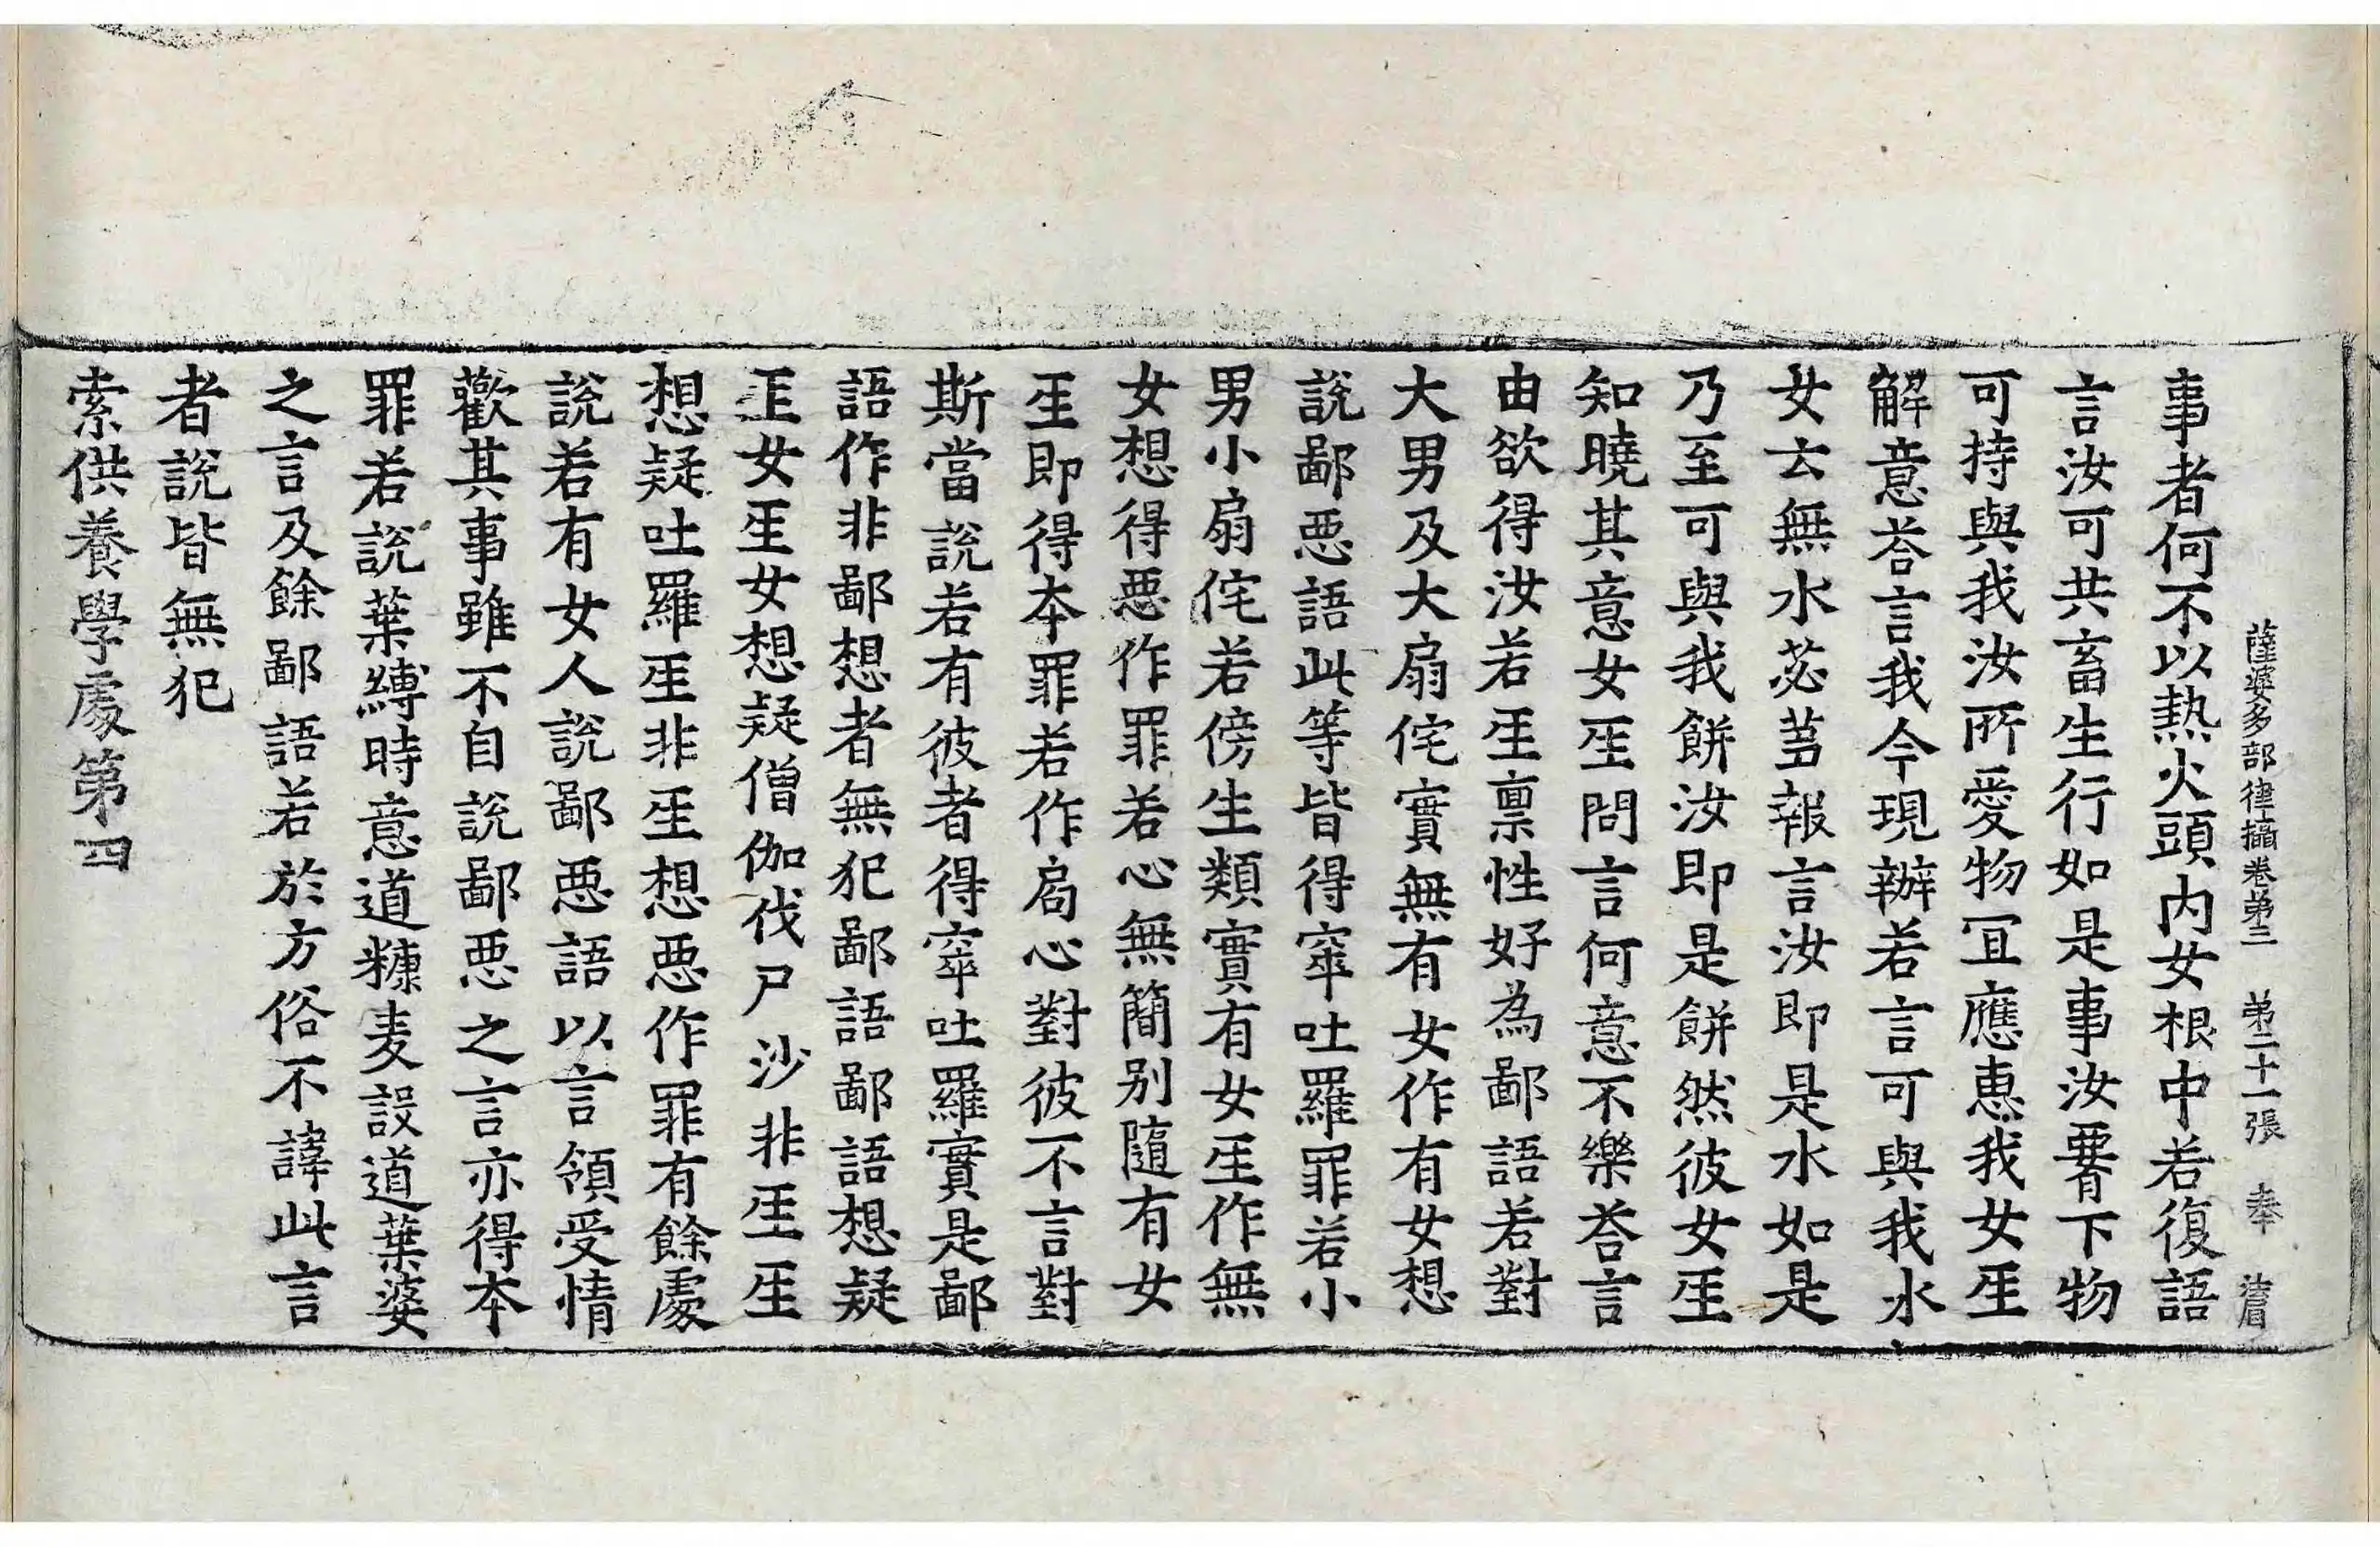 薩婆多部律攝卷第三 第二十一張 奉
事者何不以熱火頭内女根中若復語
言汝可共畜生行如是事汝要有下物
可持與我汝所愛物冝應惠我女𤯔
解意荅言我今現辦若言可與我水
女去無水苾蒭報言汝即是水如是
乃至可與我餅汝即是餅然彼女𤯔
知曉其意女𤯔問言何意不樂荅言
由欲得汝若𤯔禀性好為鄙語若對
大男及大扇侘實無有女作有女想
說鄙惡語此等皆得窣吐羅罪若小
男小扇侘若傍生類實有女𤯔作無
女想得惡作罪若心無簡別隨有女
𤯔即得本罪若作局心對彼不言對
斯當說若有彼者得窣吐羅實是鄙
語作非鄙想者無犯鄙語鄙語想疑
𤯔女𤯔女想疑僧伽伐尸沙非𤯔𤯔
想疑吐羅𤯔非𤯔想惡作罪有餘處
說若有女人說鄙惡語以言領受情
歡其事雖不自說鄙惡之言亦得本
罪若說葉縛時意道糠麦設道葉婆
之言及餘鄙語若於方俗不諱此言
者說皆無犯
索供養學處第四